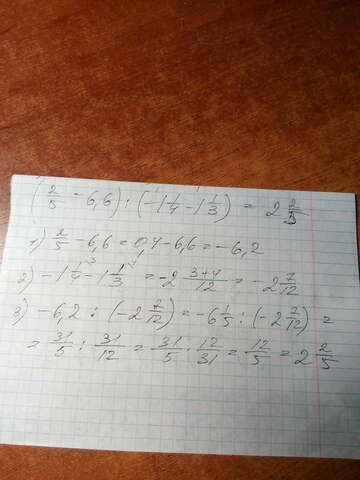 (2/5 - 6,6) : (-1 1/4 - 1 1/3) = 2 2/5
1) 2/5 - 6,6 = 0,4 - 6,6 = -6,2
2) -1 1/4 - 1 1/3 = -2 3+4/12 = -2 7/12
3) -6,2 : (-2 7/12) = -6 1/5 : (-2 7/12) =
= 31/5 : 31/12 = 31/5 · 12/31 = 12/5 = 2 2/5